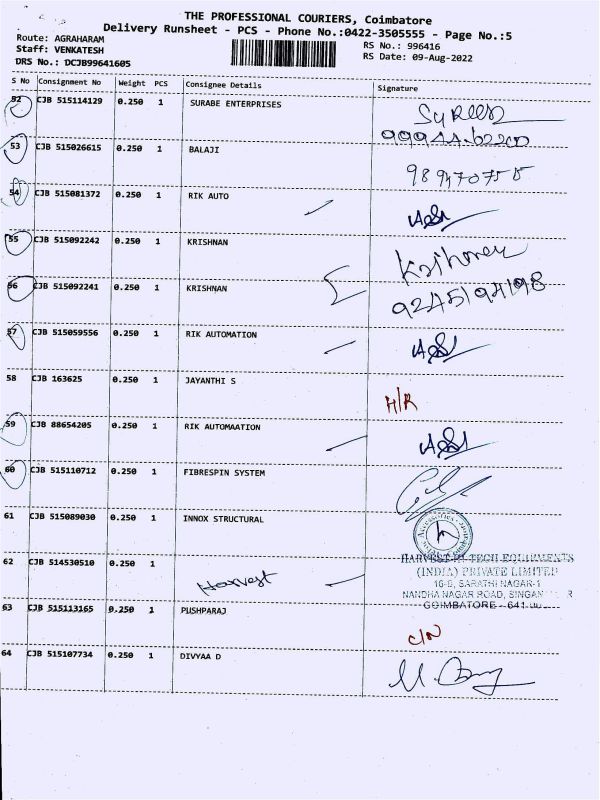 THE PROFESSIONAL COURIERS, Coimbatore
Delivery Runsheet - PCS - Phone No.:0422-3505555 - Page No.:5
Route: AGRAHARAM
RS No.: 996416
Staff: VENKATESH
RS Date: 09-Aug-2022
DRS No.: DCJB99641605
S No Consignment No Weight PCS Consignee Details Signature
52 CJB 515114129 0.250 1 SURABE ENTERPRISES
53 CJB 515026615 0.250 1 BALAJI
54 CJB 515081372 0.250 1 RIK AUTO
55 CJB 515092242 0.250 1 KRISHNAN
56 CJB 515092241 0.250 1 KRISHNAN
57 CJB 515059556 0.250 1 RIK AUTOMATION
58 CJB 163625 0.250 1 JAYANTHI S
H/R
59 CJB 88654205 0.250 1 RIK AUTOMAATION
60 CJB 515110712 0.250 1 FIBRESPIN SYSTEM
61 CJB 515089030 0.250 1 INNOX STRUCTURAL
62 CJB 514530510 0.250 1 Harvest
HARVEST HI-TECH EQUIPMENTS
(INDIA) PRIVATE LIMITED
16-B, SARATHI NAGAR-1
NANDHA NAGAR ROAD, SINGAN
COIMBATORE - 641
63 CJB 515113165 0.250 1 PUSHPARAJ
C/N
64 CJB 515107734 0.250 1 DIVYAA D